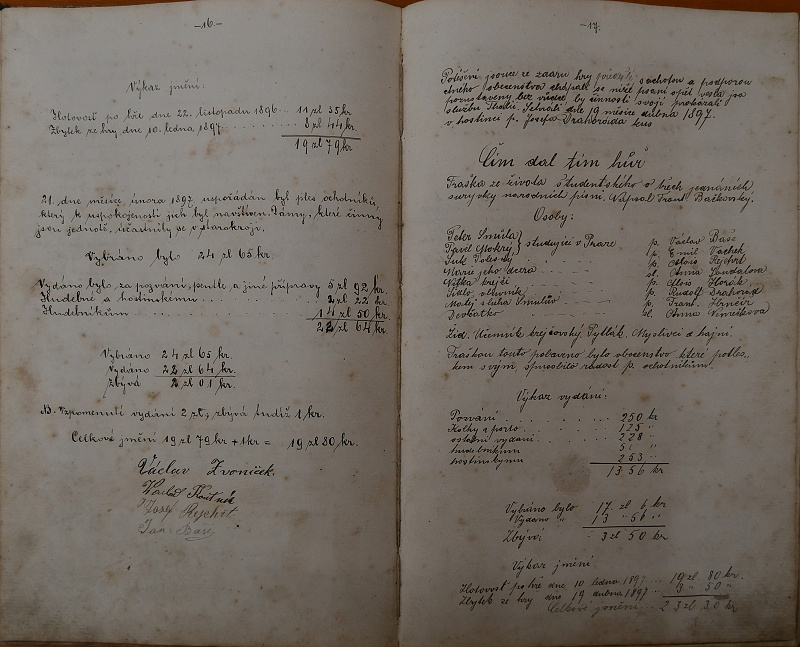 -16-
Výkaz jmění:
Hotovost po hře dne 22. listopadu 1896 ... 11 zl 35 kr
Zbytek ze hry dne 10. ledna 1897 ........ 8 zl 44 kr.
19 zl 79 kr
21. dne měsíce února 1897 uspořádán byl ples ochotníků,
který k uspokojenosti jich byl navštíven. Dámy, které činny
jsou jednotě, účastnily se v starokroji.
Vybráno bylo 24 zl 65 kr.
Vydáno bylo za pozvání, pentle a jiné přípravy 5 zl 92 kr.
Hudebné a hostinskému ........ 2 zl 22 kr
Hudebníkům ........ 14 zl 50 kr.
22 zl 64 kr.
Vybráno 24 zl 65 kr.
Vydáno 22 zl 64 kr.
Zbývá 2 zl 01 kr.
NB. Vzpomenuti vydání 2 zl, zbývá tudíž 1 kr.
Celkové jmění 19 zl 79 kr + 1 kr = 19 zl 80 kr.
Václav Zvoníček.
Josef Rychit
Jan Baše
-17-
Potěšeni jsouce ze zdaru hry a podporou
ctného obecenstva
pozvaný bez
službu Thalii. Sehráli dne 19 měsíce dubna 1897.
v hostinci p. Josefa Drahoráda kus
Čím dál tím hůř
Fraška ze života studentského o třech jednáních,
se zpěvy národních písní. Napsal Frant Bačkovský.
Osoby:
Petr Smůla } studující v Praze p. Václav Baše
Pavel Mokrý p. Emil Vaněk
p. Alois Rychit
Marie jeho dcera sl. Anna Šandalova
krejčí p. Alois Horák
p. Rudolf Drahorád
Matěj sluha Smulův p. Frant. Hrnčíř
Děvčátko sl. Anna Němečkova
Žid. Učenník krejčovský Pytlák. Myslivci a hajní.
Fraškou touto pobaveno bylo obecenstvo které potles-
kem svým způsobilo radost p. ochotníkům.
Výkaz vydání:
Pozvání ........ 250 kr
Kolky a porto ........ 125 "
ostatní vydání ........ 228 "
hudebníkům
hostinskýmu 253 "
13 56 kr
Vybráno bylo 17 zl 6 kr
Vydáno " 13 " 56 "
Zbývá 3 zl 50 kr
Výkaz jmění
Hotovost po hře dne 10 ledna 1897 ... 19 zl. 80 kr.
Zbytek ze hry dne 19 dubna 1897 ... 3 " 50 "
Celkové jmění ... 23 zl 30 kr